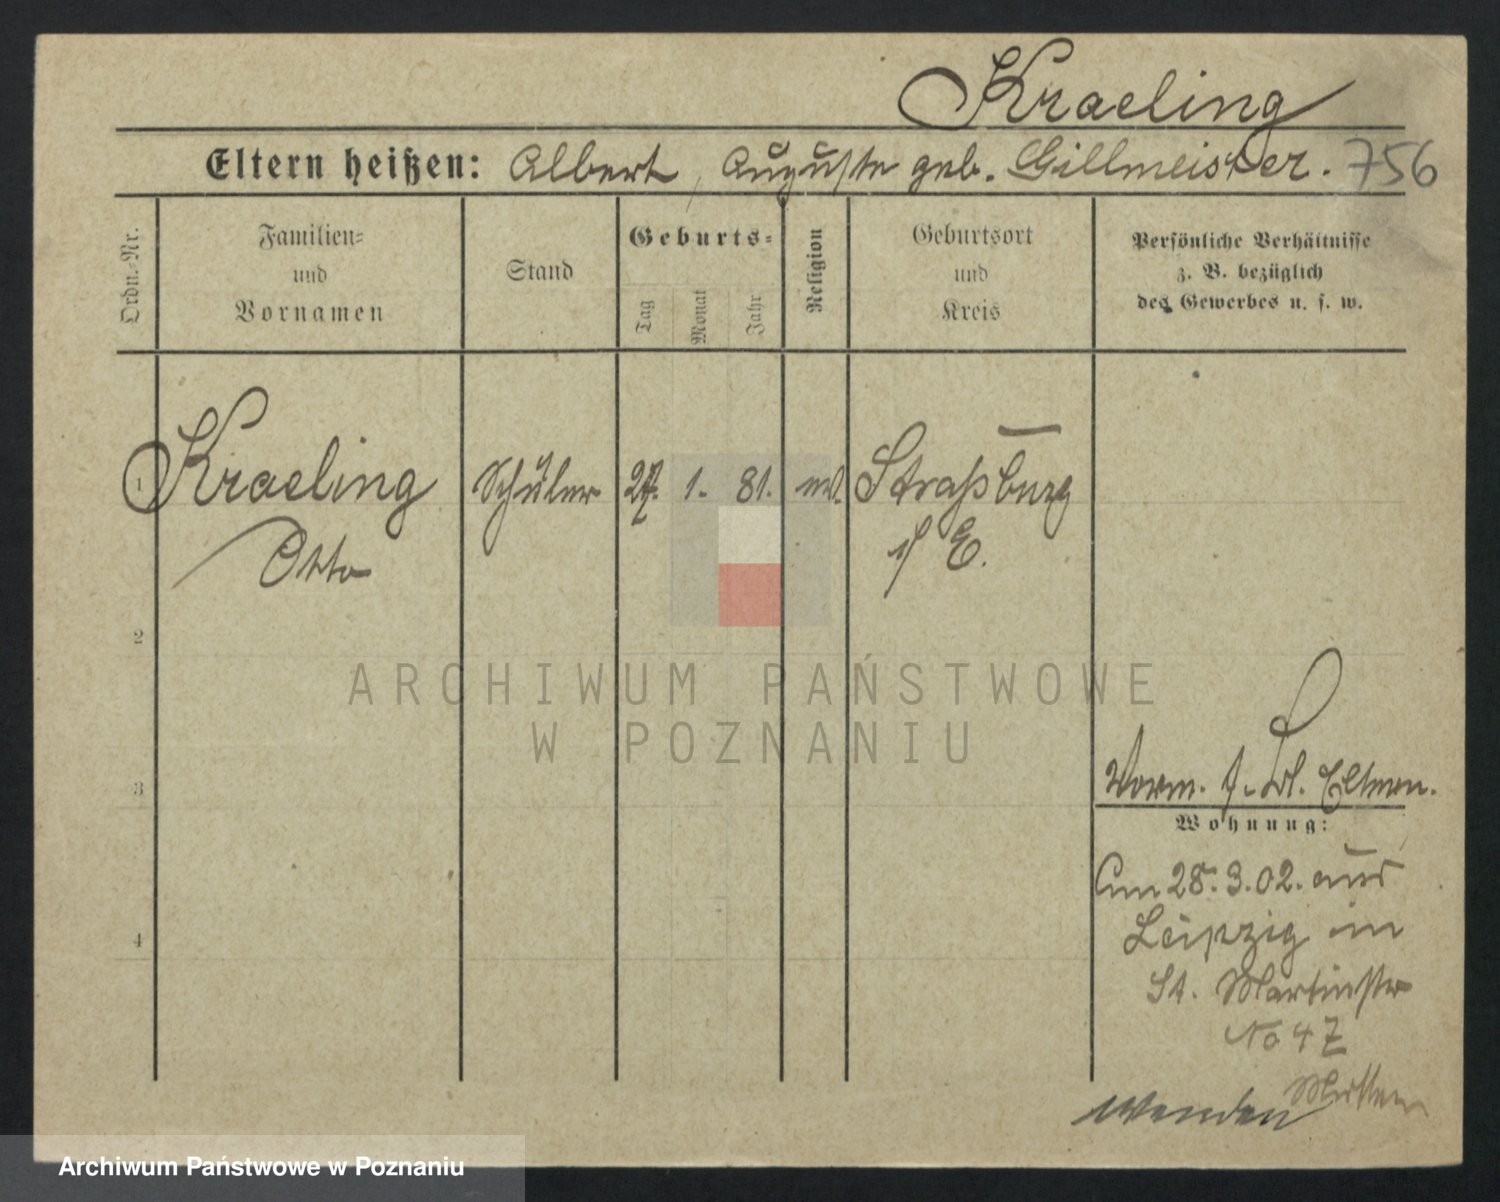 Kraeling
Eltern heißen: Albert, Auguste geb. Gillmeister. 756
Ordn.-Nr.
Familien-
und
Vornamen
Stand
Geburts-
Tag
Monat
Jahr
Religion
Geburtsort
und
Kreis
Persönliche Verhältnisse
z. B. bezüglich
des Gewerbes u. s. w.
1 Kraeling Schüler 27. 1. 81. ev. Straßburg
Otto i/E.
2
3
4
Vorm. Eltern.
Wohnung:
Am 28.3.02. aus
Leipzig in
St. Martinstr
No 4
wenden
ARCHIWUM PAŃSTWOWE
W POZNANIU
Archiwum Państwowe w Poznaniu